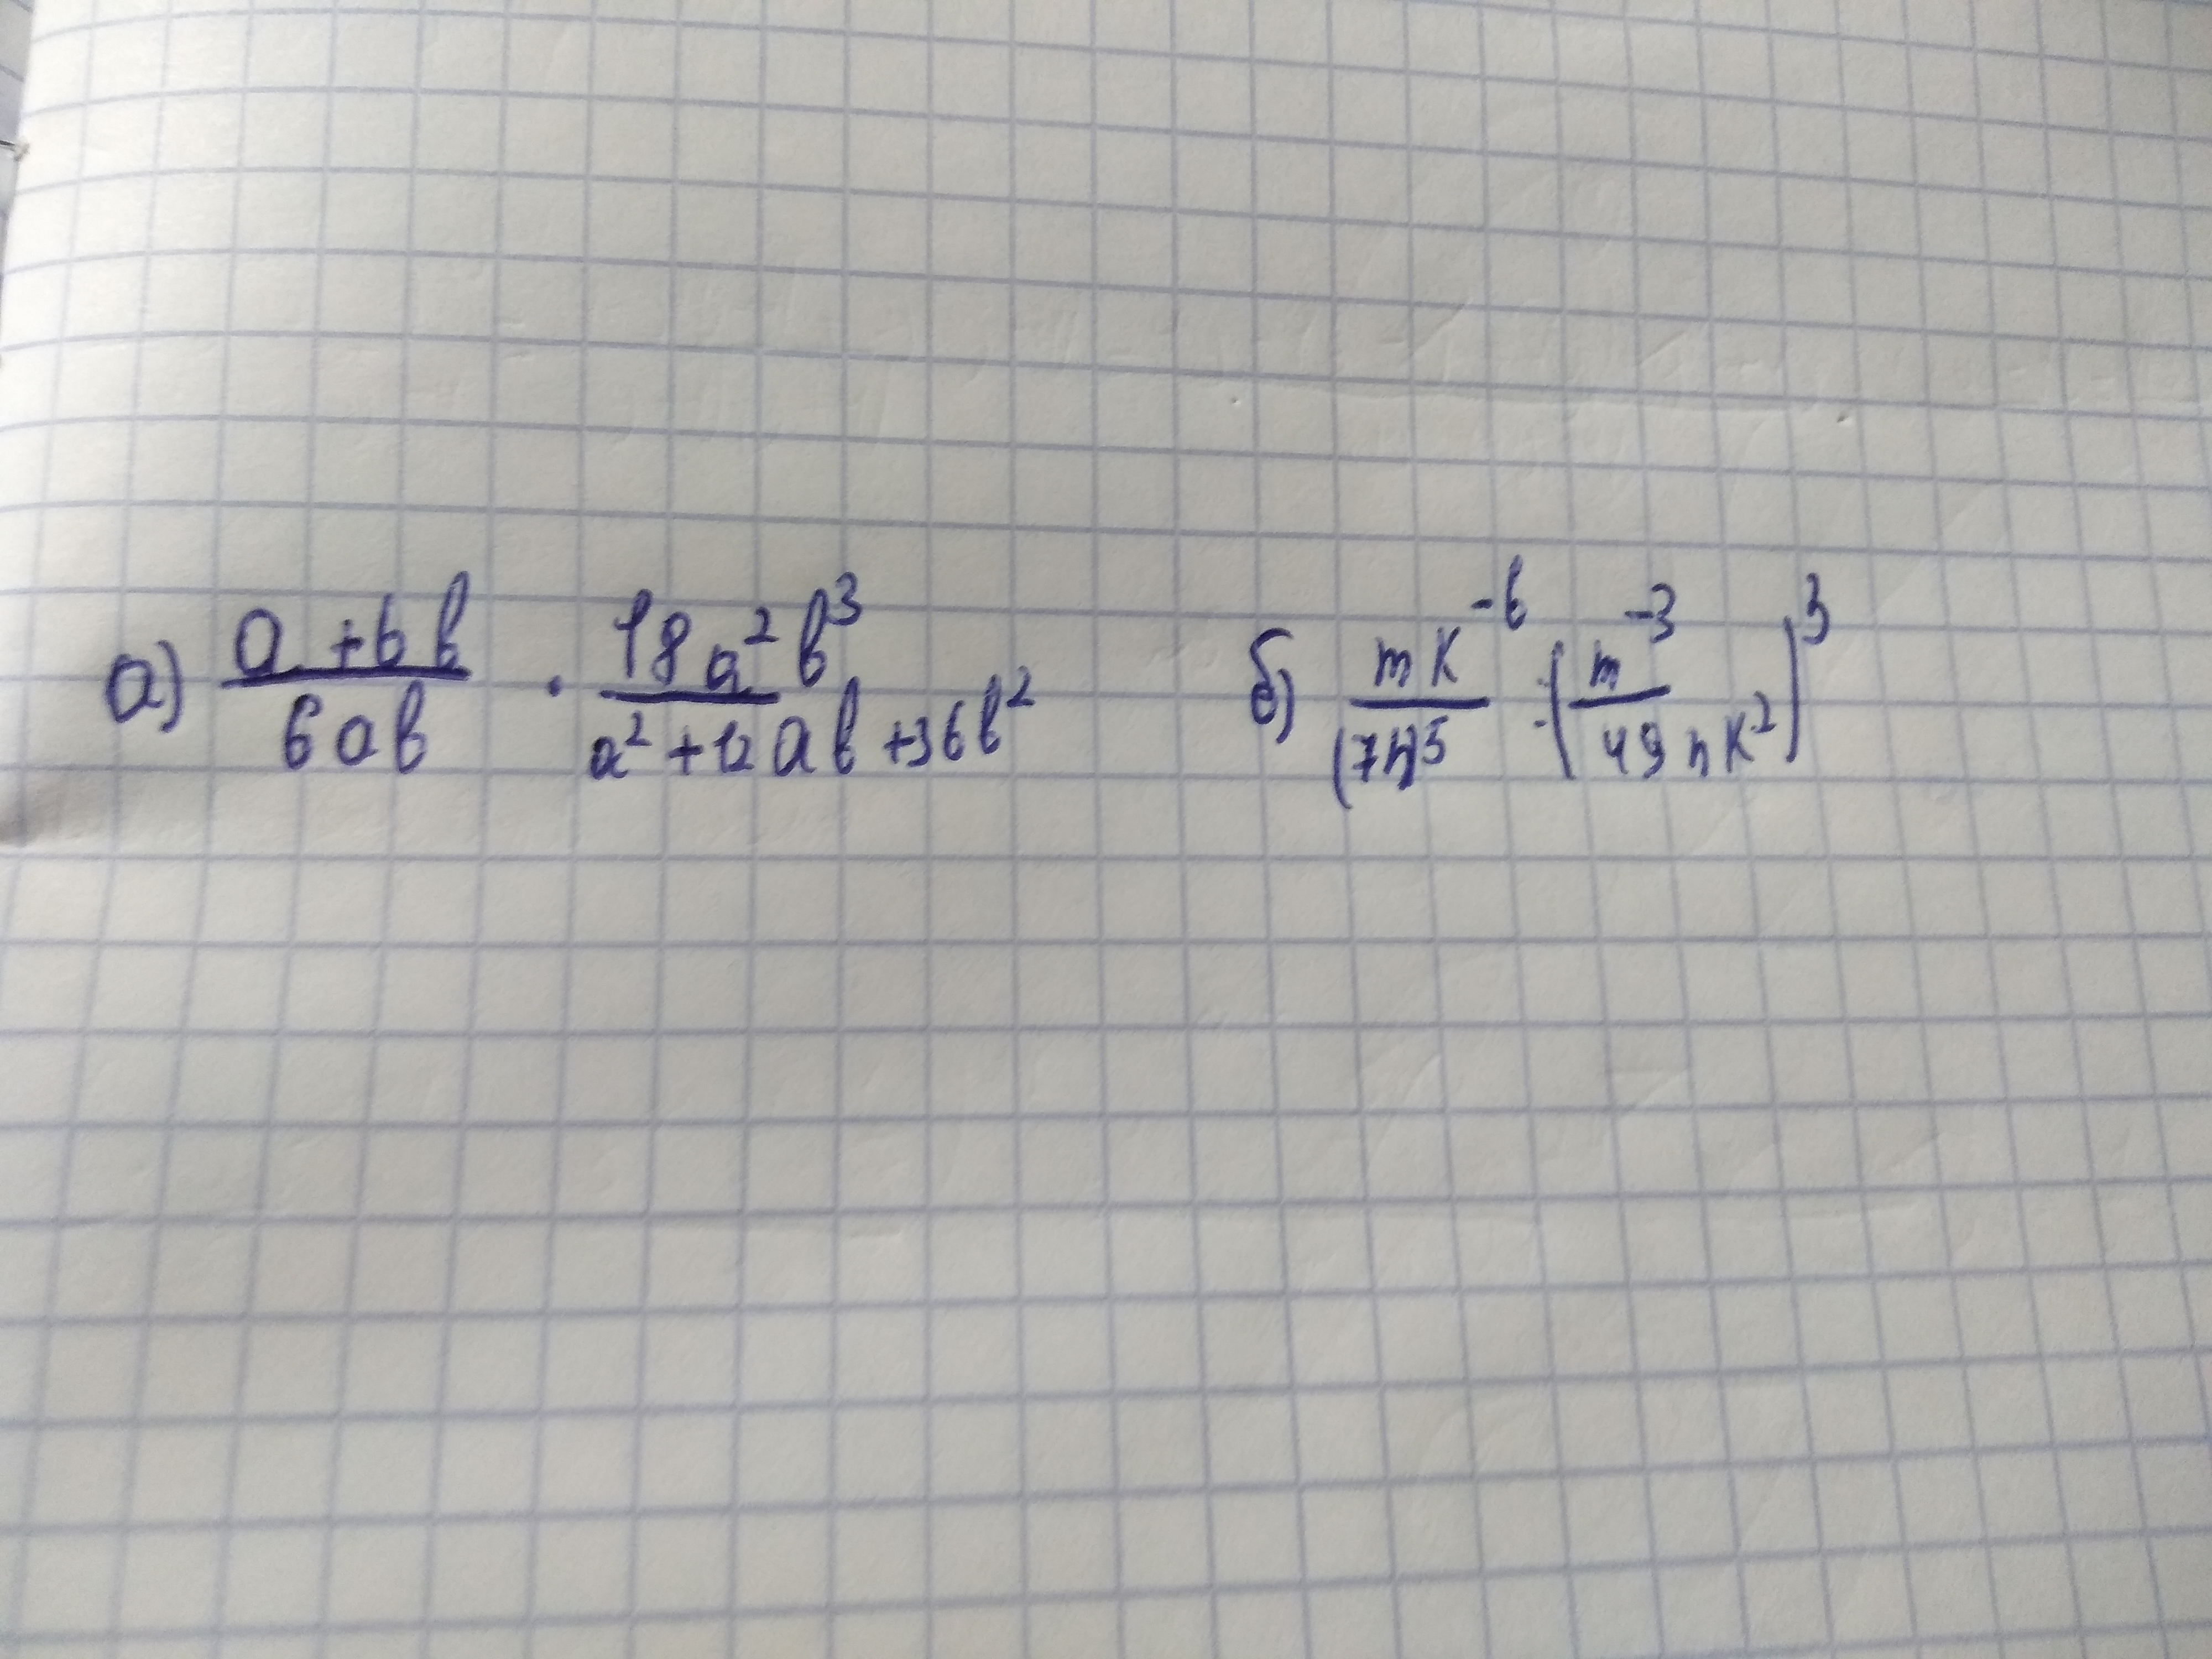 а) (a + 6b)/(6ab) · (18a²b³)/(a² + 12ab + 36b²)
б) (mk⁻⁶)/((7n)⁵) : (m⁻³/(49nk²))³